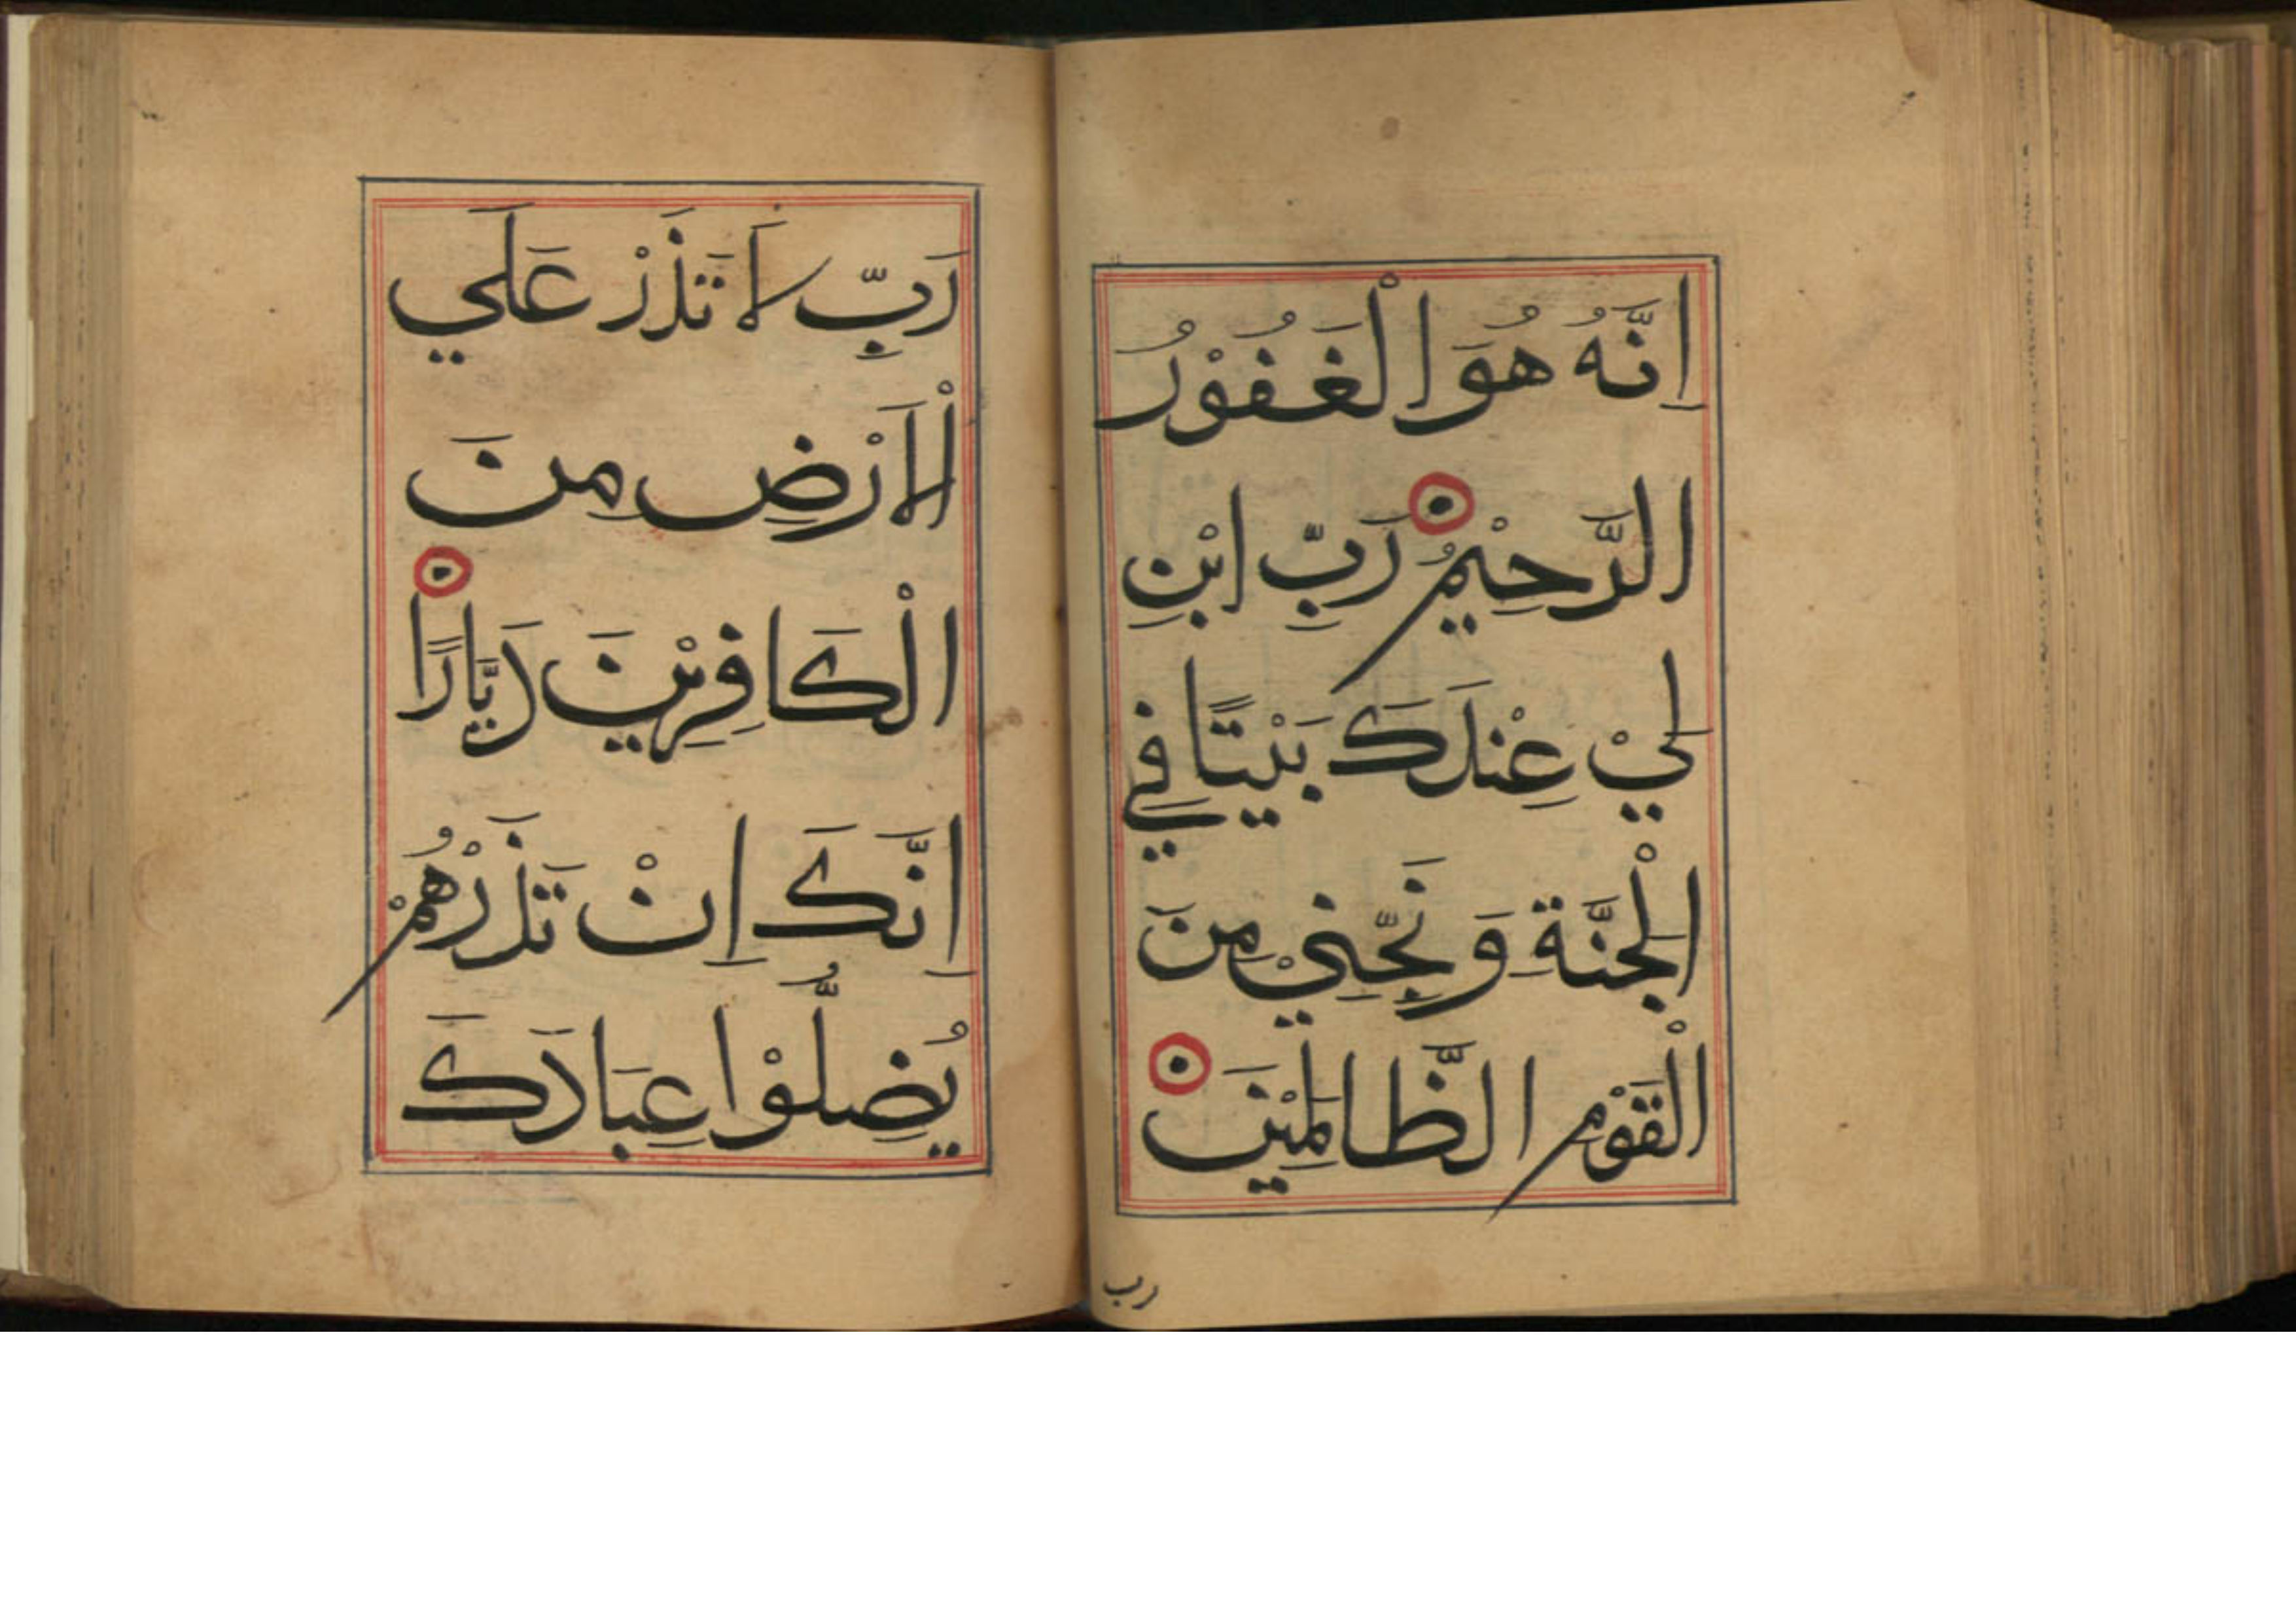 اِنَّهُ هُوَ الْغَفُوْرُ
الرَّحِيْمُ رَبِّ ابْنِ
لِيْ عِنْدَكَ بَيْتًا فِي
الْجَنَّةِ وَنَجِّنِيْ مِنَ
الْقَوْمِ الظَّالِمِيْنَ
رب
رَبِّ لَا تَذَرْ عَلَي
الْاَرْضِ مِنَ
الْكَافِرِيْنَ دَيَّارًا
اِنَّكَ اِنْ تَذَرْهُمْ
يُضِلُّوْا عِبَادَكَ